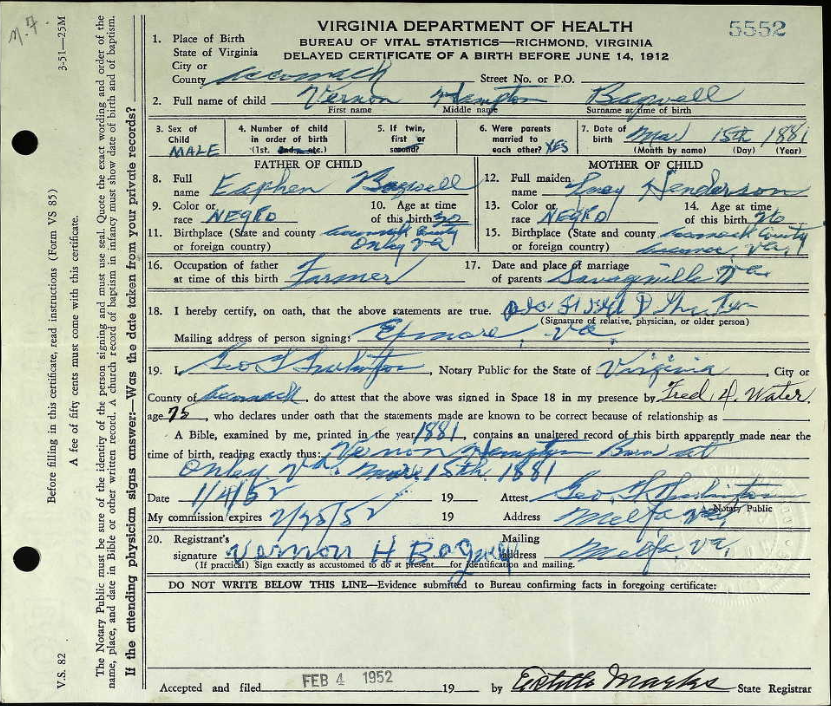 VIRGINIA DEPARTMENT OF HEALTH
BUREAU OF VITAL STATISTICS—RICHMOND, VIRGINIA
DELAYED CERTIFICATE OF A BIRTH BEFORE JUNE 14, 1912
5552
3-51—25M
1. Place of Birth
State of Virginia
City or
County Accomack Street No. or P.O.
2. Full name of child Vernon Hampton Bagwell
First name Middle name Surname at time of birth
3. Sex of Child MALE
4. Number of child in order of birth (1st. 2nd. etc.)
5. If twin, first or second?
6. Were parents married to each other? YES
7. Date of birth Mar 15th 1881
(Month by name) (Day) (Year)
FATHER OF CHILD
8. Full name Bagwell
9. Color or race NEGRO 10. Age at time of this birth 30
11. Birthplace (State and county or foreign country) Accomack County
Onley Va
MOTHER OF CHILD
12. Full maiden name Henderson
13. Color or race NEGRO 14. Age at time of this birth 26
15. Birthplace (State and county or foreign country) Accomack County
Va.
16. Occupation of father at time of this birth Farmer
17. Date and place of marriage of parents Savageville Va.
18. I hereby certify, on oath, that the above statements are true.
(Signature of relative, physician, or older person)
Mailing address of person signing: Va
19. I, Geo , Notary Public for the State of Virginia, City or
County of Accomack, do attest that the above was signed in Space 18 in my presence by Fred Water
age 75, who declares under oath that the statements made are known to be correct because of relationship as
A Bible, examined by me, printed in the year 1881, contains an unaltered record of this birth apparently made near the
time of birth, reading exactly thus: Vernon Hampton Born at
Onley Va. Mar. 15th. 1881
Date 1/4/52 19 Attest Geo
Notary Public
My commission expires 2/25/52 19 Address Melfa Va.
20. Registrant's signature Vernon H Bagwell Mailing address Melfa, Va,
(If practical) Sign exactly as accustomed to do at present for identification and mailing.
DO NOT WRITE BELOW THIS LINE—Evidence submitted to Bureau confirming facts in foregoing certificate:
Accepted and filed FEB 4 1952 19 by Estelle Marks State Registrar
V.S. 82
Before filling in this certificate, read instructions (Form VS 85)
A fee of fifty cents must come with this certificate.
The Notary Public must be sure of the identity of the person signing and must use seal. Quote the exact wording and order of the
name, place, and date in Bible or other written record. A church record of baptism in infancy must show date of birth and of baptism.
If the attending physician signs answer:—Was the date taken from your private records?